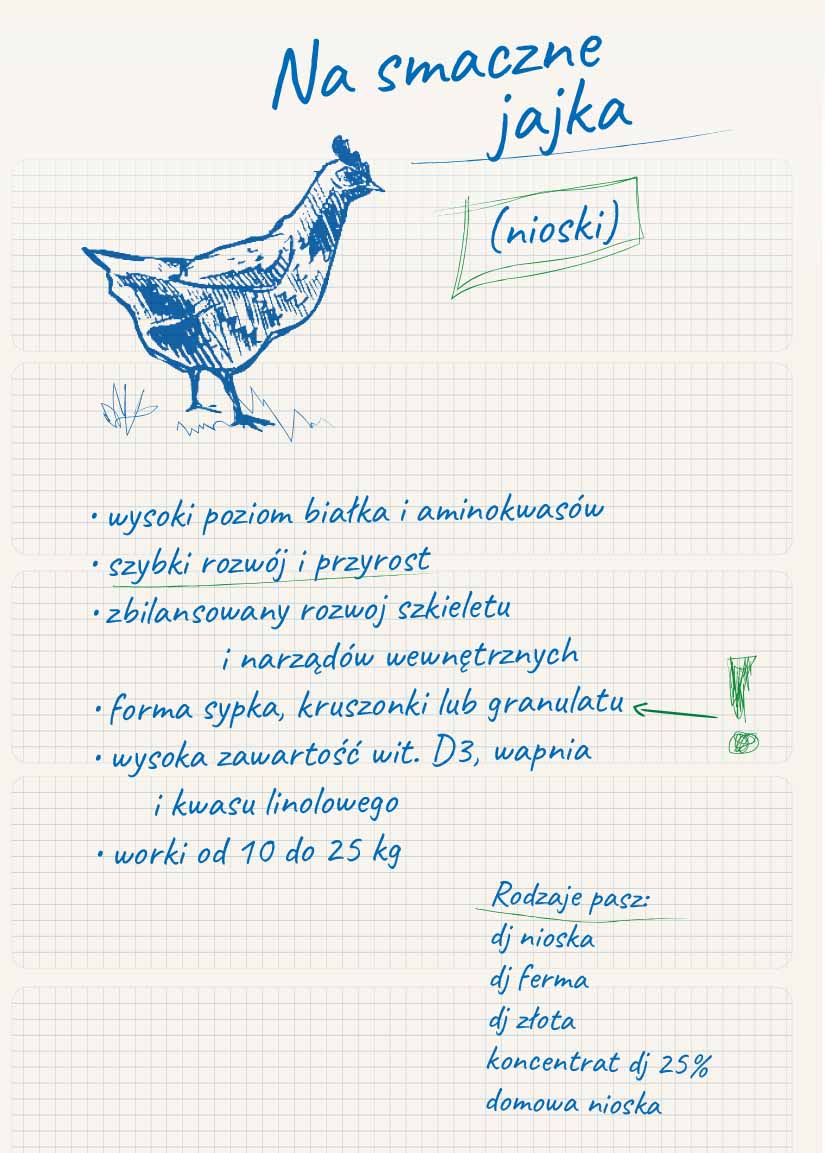 Na smaczne
jajka
(nioski)
• wysoki poziom białka i aminokwasów
• szybki rozwój i przyrost
• zbilansowany rozwoj szkieletu
i narządów wewnętrznych
• forma sypka, kruszonki lub granulatu
!
• wysoka zawartość wit. D3, wapnia
i kwasu linolowego
• worki od 10 do 25 kg
Rodzaje pasz:
dj nioska
dj ferma
dj złota
koncentrat dj 25%
domowa nioska